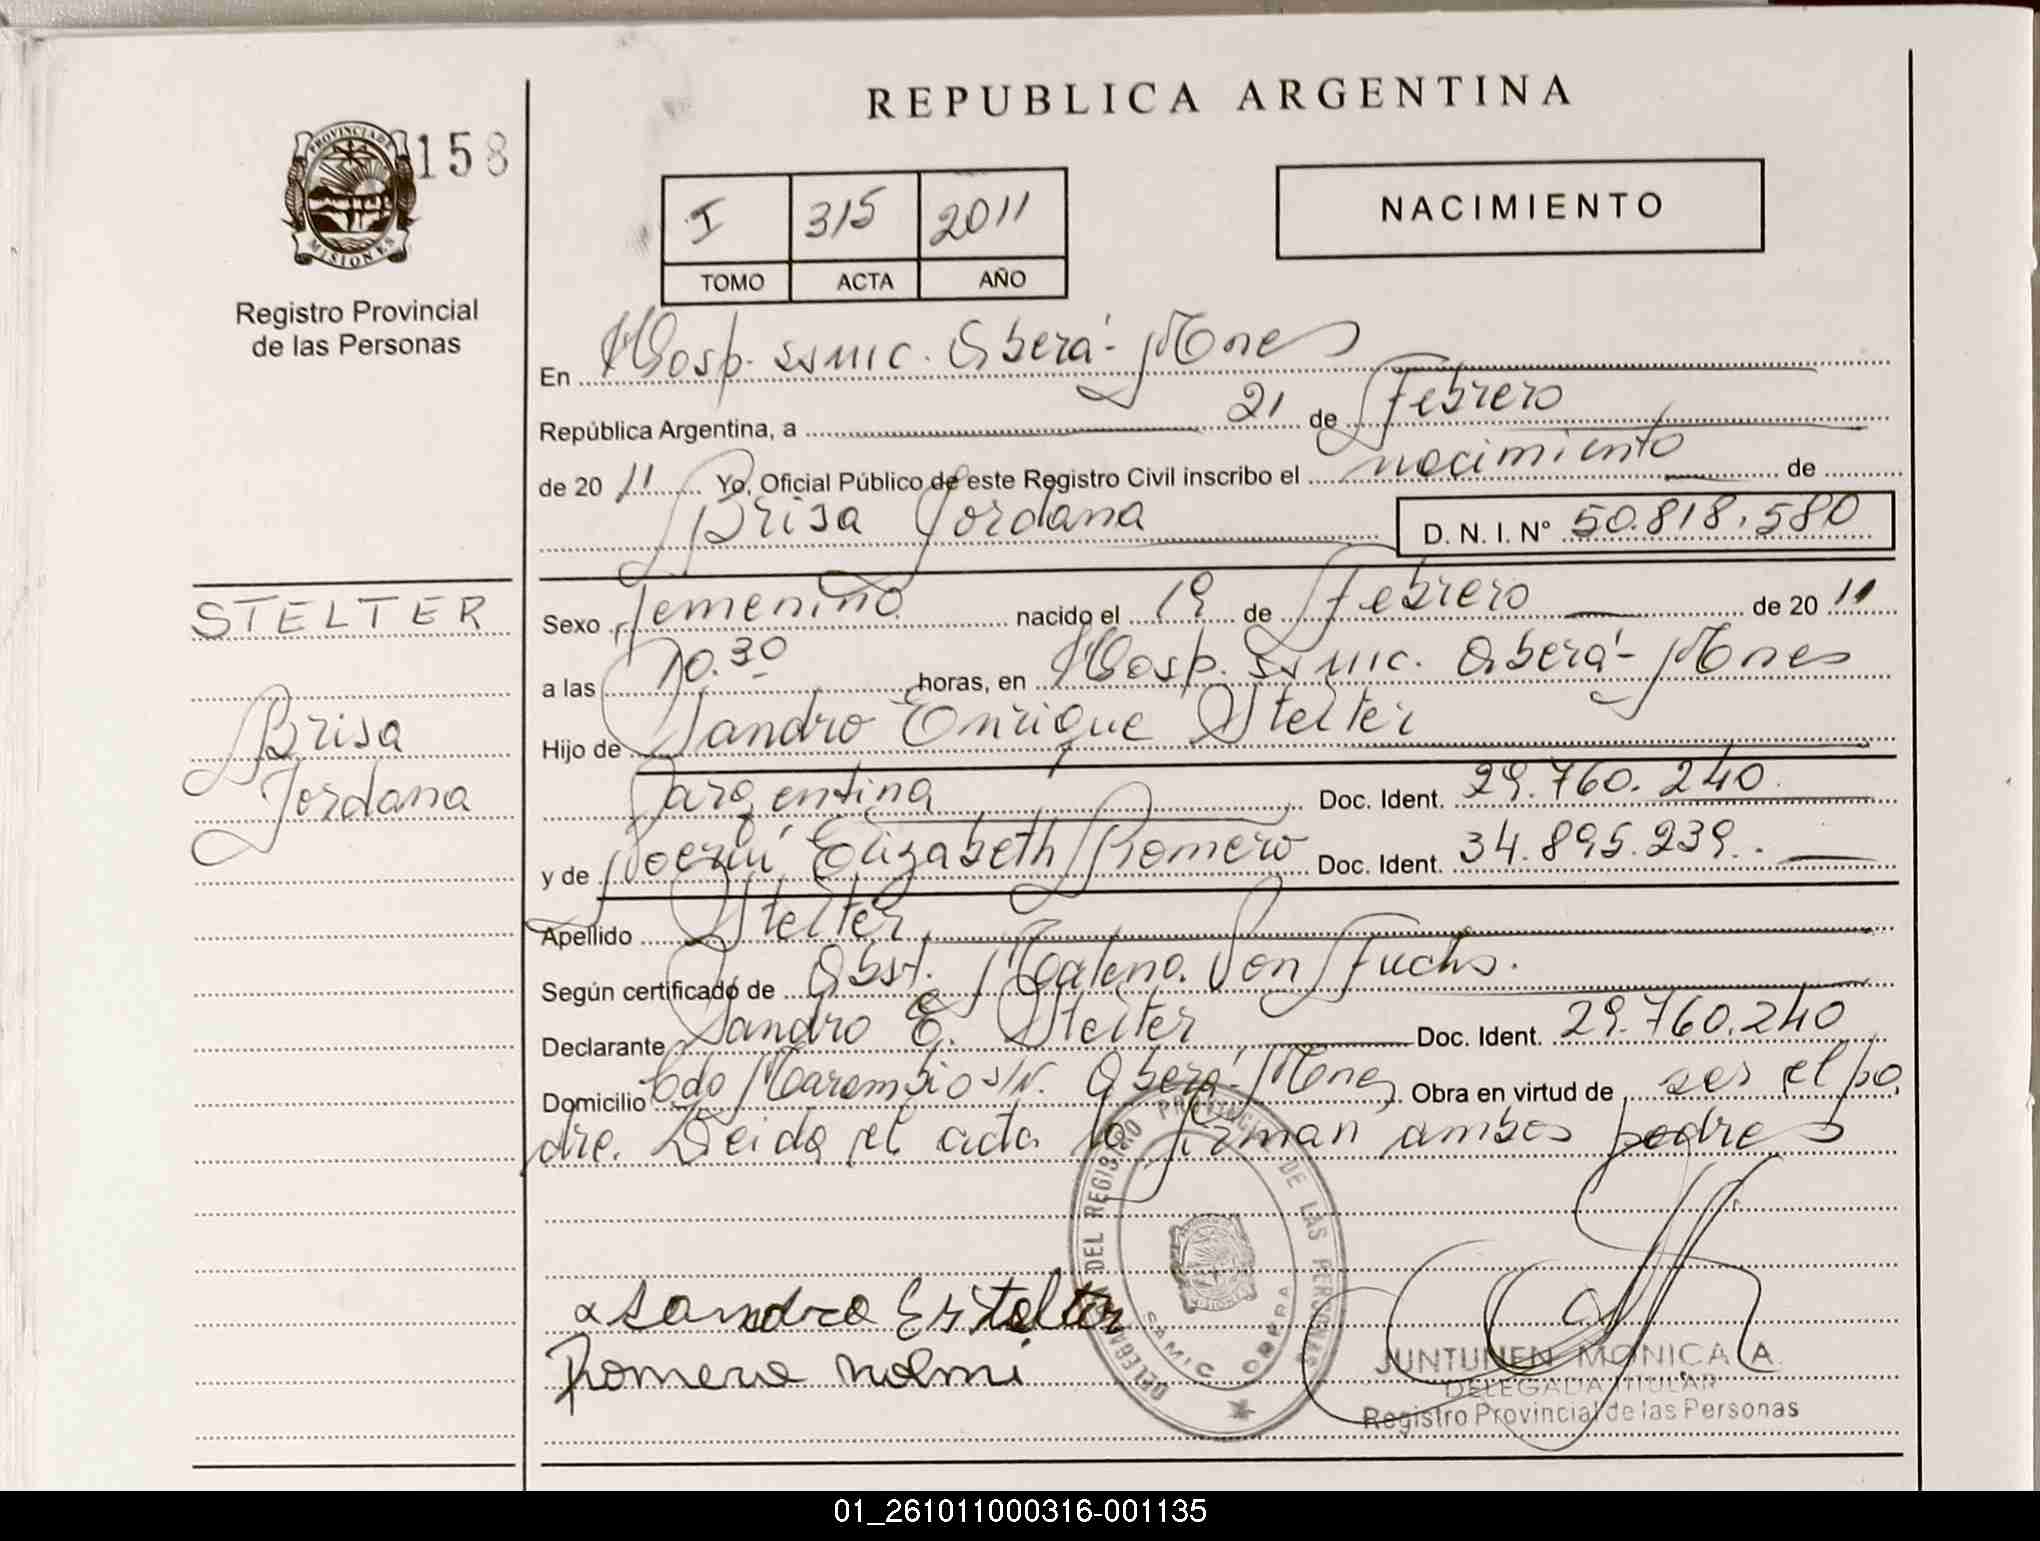 REPUBLICA ARGENTINA
PROVINCIA DE MISIONES
158
Registro Provincial
de las Personas
I 315 2011
TOMO ACTA AÑO
NACIMIENTO
En Hosp. SSMIC. Oberá - Mnes
República Argentina, a 21 de Febrero
de 2011 Yo, Oficial Público de este Registro Civil inscribo el nacimiento de
Brisa Jordana D. N. I. Nº 50.818.580
STELTER
Brisa
Jordana
Sexo femenino nacido el 19 de Febrero de 2011
a las 10.30 horas, en Hosp. SSMIC. Oberá - Mnes
Hijo de Sandro Enrique Stelter
argentina Doc. Ident. 29.760.240
y de Noemí Elizabeth Romero Doc. Ident. 34.895.239.
Apellido Stelter
Según certificado de Obst. Von Fuchs.
Declarante Sandro E. Stelter Doc. Ident. 29.760.240
Domicilio Marambio S/N. Oberá - Mnes Obra en virtud de ser el pa
dre. Leida el acta la firman ambos padres
DEL REGISTRO PROVINCIAL DE LAS PERSONAS
SAMIC OBERA
Sandro E Stelter
Romero Noemi
JUNTUNEN MONICA A.
DELEGADA TITULAR
Registro Provincial de las Personas
01_261011000316-001135